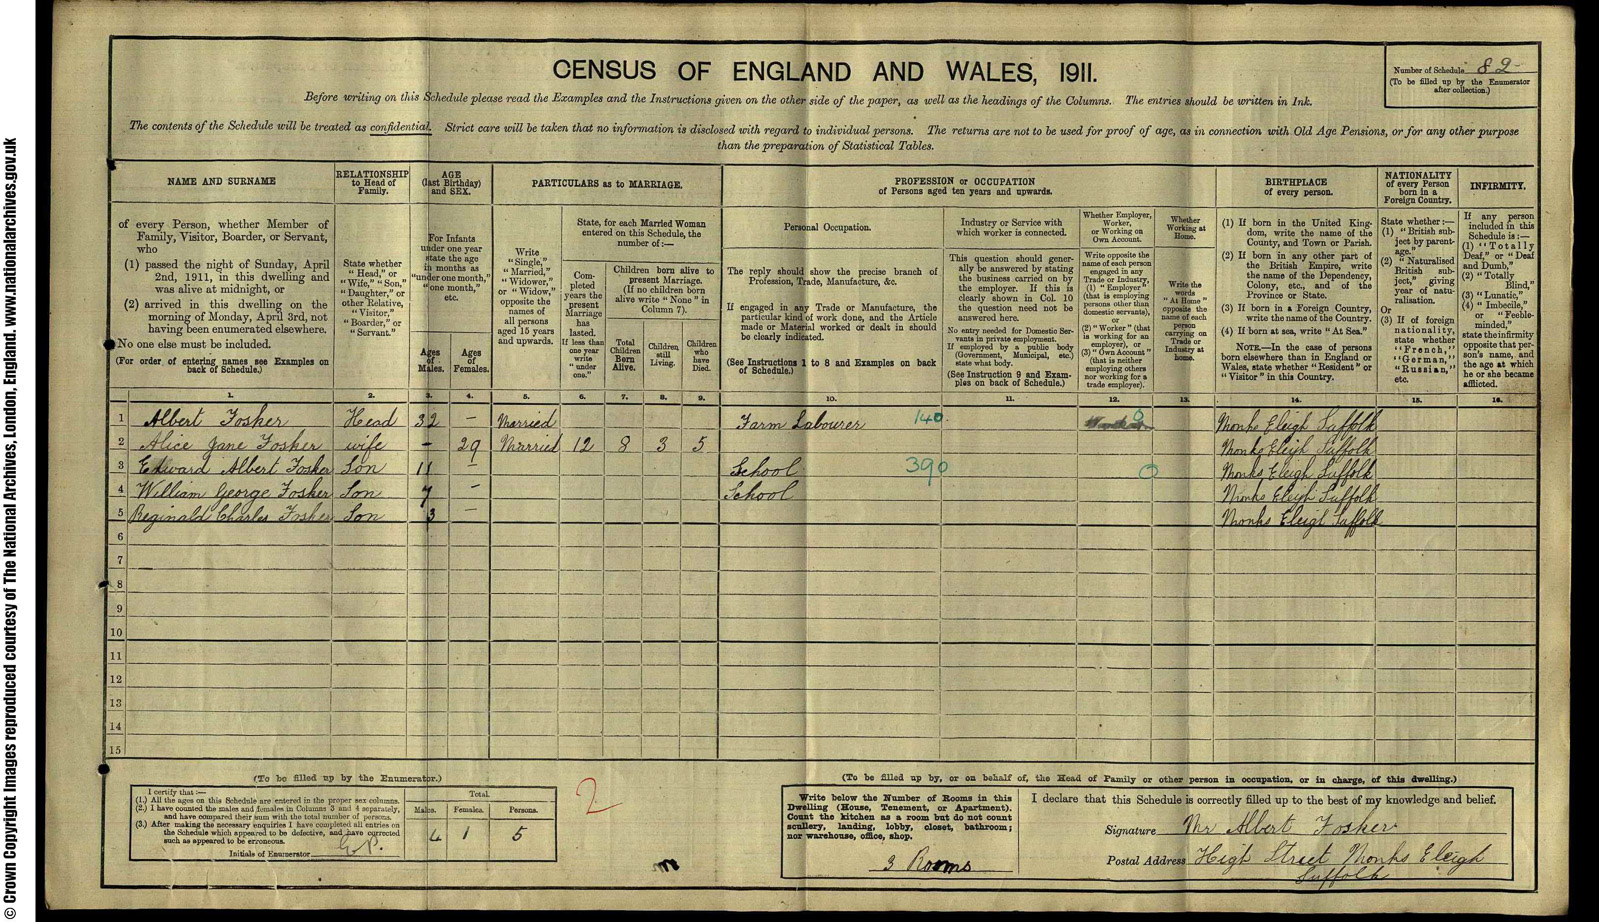 CENSUS OF ENGLAND AND WALES, 1911.
Number of Schedule 82
(To be filled up by the Enumerator
after collection.)
Before writing on this Schedule please read the Examples and the Instructions given on the other side of the paper, as well as the headings of the Columns. The entries should be written in Ink.
The contents of the Schedule will be treated as confidential. Strict care will be taken that no information is disclosed with regard to individual persons. The returns are not to be used for proof of age, as in connection with Old Age Pensions, or for any other purpose
than the preparation of Statistical Tables.
NAME AND SURNAME
of every Person, whether Member of
Family, Visitor, Boarder, or Servant,
who
(1) passed the night of Sunday, April
2nd, 1911, in this dwelling and
was alive at midnight, or
(2) arrived in this dwelling on the
morning of Monday, April 3rd, not
having been enumerated elsewhere.
No one else must be included.
(For order of entering names see Examples on
back of Schedule.)
RELATIONSHIP
to Head of
Family.
State whether
"Head," or
"Wife," "Son,"
"Daughter," or
other Relative,
"Visitor,"
"Boarder," or
"Servant."
AGE
(last Birthday)
and SEX.
For Infants
under one year
state the age
in months as
"under one month,"
"one month,"
etc.
Ages
of
Males.
Ages
of
Females.
PARTICULARS as to MARRIAGE.
Write
"Single,"
"Married,"
"Widower,"
or "Widow,"
opposite the
names of
all persons
aged 15 years
and upwards.
State, for each Married Woman
entered on this Schedule, the
number of:—
Com-
pleted
years the
present
Marriage
has
lasted.
If less than
one year
write
"under
one."
Children born alive to
present Marriage.
(If no children born
alive write "None" in
Column 7).
Total
Children
Born
Alive.
Children
still
Living.
Children
who
have
Died.
PROFESSION or OCCUPATION
of Persons aged ten years and upwards.
Personal Occupation.
The reply should show the precise branch of
Profession, Trade, Manufacture, &c.
If engaged in any Trade or Manufacture, the
particular kind of work done, and the Article
made or Material worked or dealt in should
be clearly indicated.
(See Instructions 1 to 8 and Examples on back
of Schedule.)
Industry or Service with
which worker is connected.
This question should gener-
ally be answered by stating
the business carried on by
the employer. If this is
clearly shown in Col. 10
the question need not be
answered here.
No entry needed for Domestic Ser-
vants in private employment.
If employed by a public body
(Government, Municipal, etc.)
state what body.
(See Instruction 9 and Exam-
ples on back of Schedule.)
Whether Employer,
Worker,
or Working on
Own Account.
Write opposite the
name of each person
engaged in any
Trade or Industry,
(1) "Employer"
(that is employing
persons other than
domestic servants),
or
(2) "Worker" (that
is working for an
employer), or
(3) "Own Account"
(that is neither
employing others
nor working for a
trade employer).
Whether
Working at
Home.
Write the
words
"At Home"
opposite the
name of each
person
carrying on
Trade or
Industry at
home.
BIRTHPLACE
of every person.
(1) If born in the United King-
dom, write the name of the
County, and Town or Parish.
(2) If born in any other part of
the British Empire, write
the name of the Dependency,
Colony, etc., and of the
Province or State.
(3) If born in a Foreign Country,
write the name of the Country.
(4) If born at sea, write "At Sea."
NOTE.—In the case of persons
born elsewhere than in England or
Wales, state whether "Resident" or
"Visitor" in this Country.
NATIONALITY
of every Person
born in a
Foreign Country.
State whether:—
(1) "British sub-
ject by parent-
age."
(2) "Naturalised
British sub-
ject," giving
year of natu-
ralisation.
Or
(3) If of foreign
nationality,
state whether
"French,"
"German,"
"Russian,"
etc.
INFIRMITY.
If any person
included in this
Schedule is:—
(1) "Totally
Deaf," or "Deaf
and Dumb,"
(2) "Totally
Blind,"
(3) "Lunatic,"
(4) "Imbecile,"
or "Feeble-
minded,"
state the infirmity
opposite that per-
son's name, and
the age at which
he or she became
afflicted.
1. 2. 3. 4. 5. 6. 7. 8. 9. 10. 11. 12. 13. 14. 15. 16.
1 Albert Fosker Head 32 – Married Farm Labourer 140 0 Monks Eleigh Suffolk
2 Alice Jane Fosker wife – 29 Married 12 8 3 5 Monks Eleigh Suffolk
3 Edward Albert Fosker Son 11 – School 390 0 Monks Eleigh Suffolk
4 William George Fosker Son 7 – School Monks Eleigh Suffolk
5 Reginald Charles Fosker Son 3 – Monks Eleigh Suffolk
6
7
8
9
10
11
12
13
14
15
(To be filled up by the Enumerator.)
I certify that:—
(1.) All the ages on this Schedule are entered in the proper sex columns.
(2.) I have counted the males and females in Columns 3 and 4 separately,
and have compared their sum with the total number of persons.
(3.) After making the necessary enquiries I have completed all entries on
the Schedule which appeared to be defective, and have corrected
such as appeared to be erroneous.
Initials of Enumerator
Total.
Males. Females. Persons.
4 1 5
2
(To be filled up by, or on behalf of, the Head of Family or other person in occupation, or in charge, of this dwelling.)
Write below the Number of Rooms in this
Dwelling (House, Tenement, or Apartment).
Count the kitchen as a room but do not count
scullery, landing, lobby, closet, bathroom;
nor warehouse, office, shop.
3 Rooms
I declare that this Schedule is correctly filled up to the best of my knowledge and belief.
Signature Mr Albert Fosker
Postal Address High Street Monks Eleigh
Suffolk
© Crown Copyright Images reproduced courtesy of The National Archives, London, England. www.nationalarchives.gov.uk